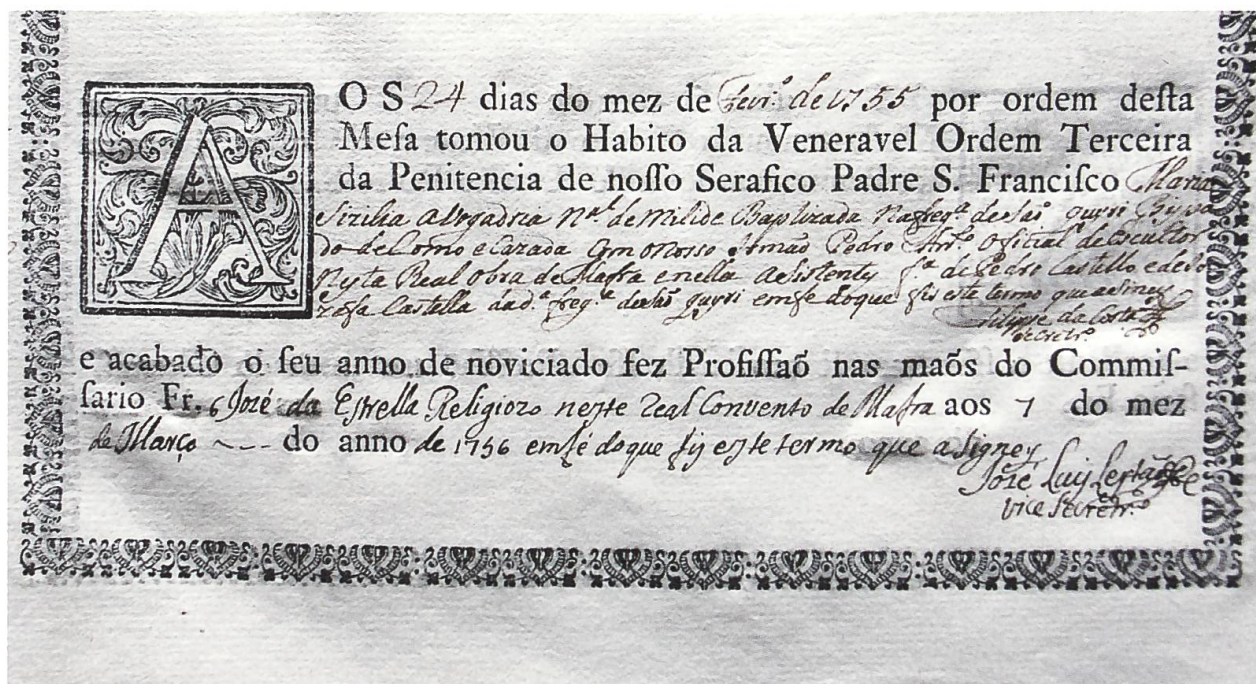 AOS 24 dias do mez de Fevr.º de 1755 por ordem deſta
Meſa tomou o Habito da Veneravel Ordem Terceira
da Penitencia de noſſo Serafico Padre S. Franciſco Maria
Sizilia N.ᵃˡ de Baptizada Na freg.ª de
do de Como e Cazada Com o Nosso Irmão Pedro Oficial de escultor
Nesta Real Obra de Mafra e nella f.ª de Pedro Castello e de
Castella da d.ª freg.ª de em fe do que fis este termo que asiney
Filippe da Costa
Secretr.º
e acabado o ſeu anno de noviciado fez Profiſſaõ nas maõs do Commiſ-
ſario Fr. José da Estrella Religiozo neste Real Convento de Mafra aos 7 do mez
de Março do anno de 1756 em fé do que fis este termo que asigney
José Luis
vice Secretr.º